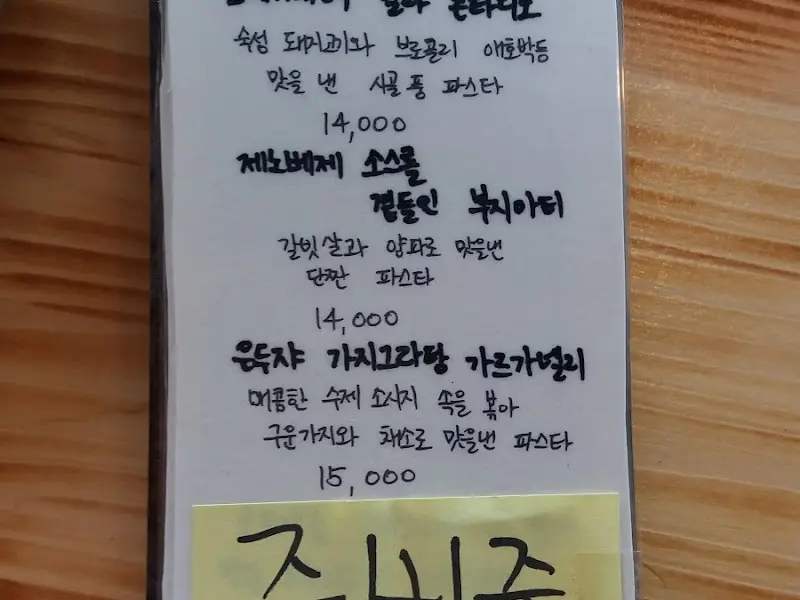 숙성 돼지고기와 브로콜리 애호박등
맛을 낸 시골풍 파스타
14,000
제노베제 소스를
곁들인 부지아티
갈빗살과 양파로 맛을낸
단짠 파스타
14,000
은두쟈 가지그라탕 가르가넬리
매콤한 수제 소시지 속을 볶아
구운가지와 채소로 맛을낸 파스타
15,000
준비중